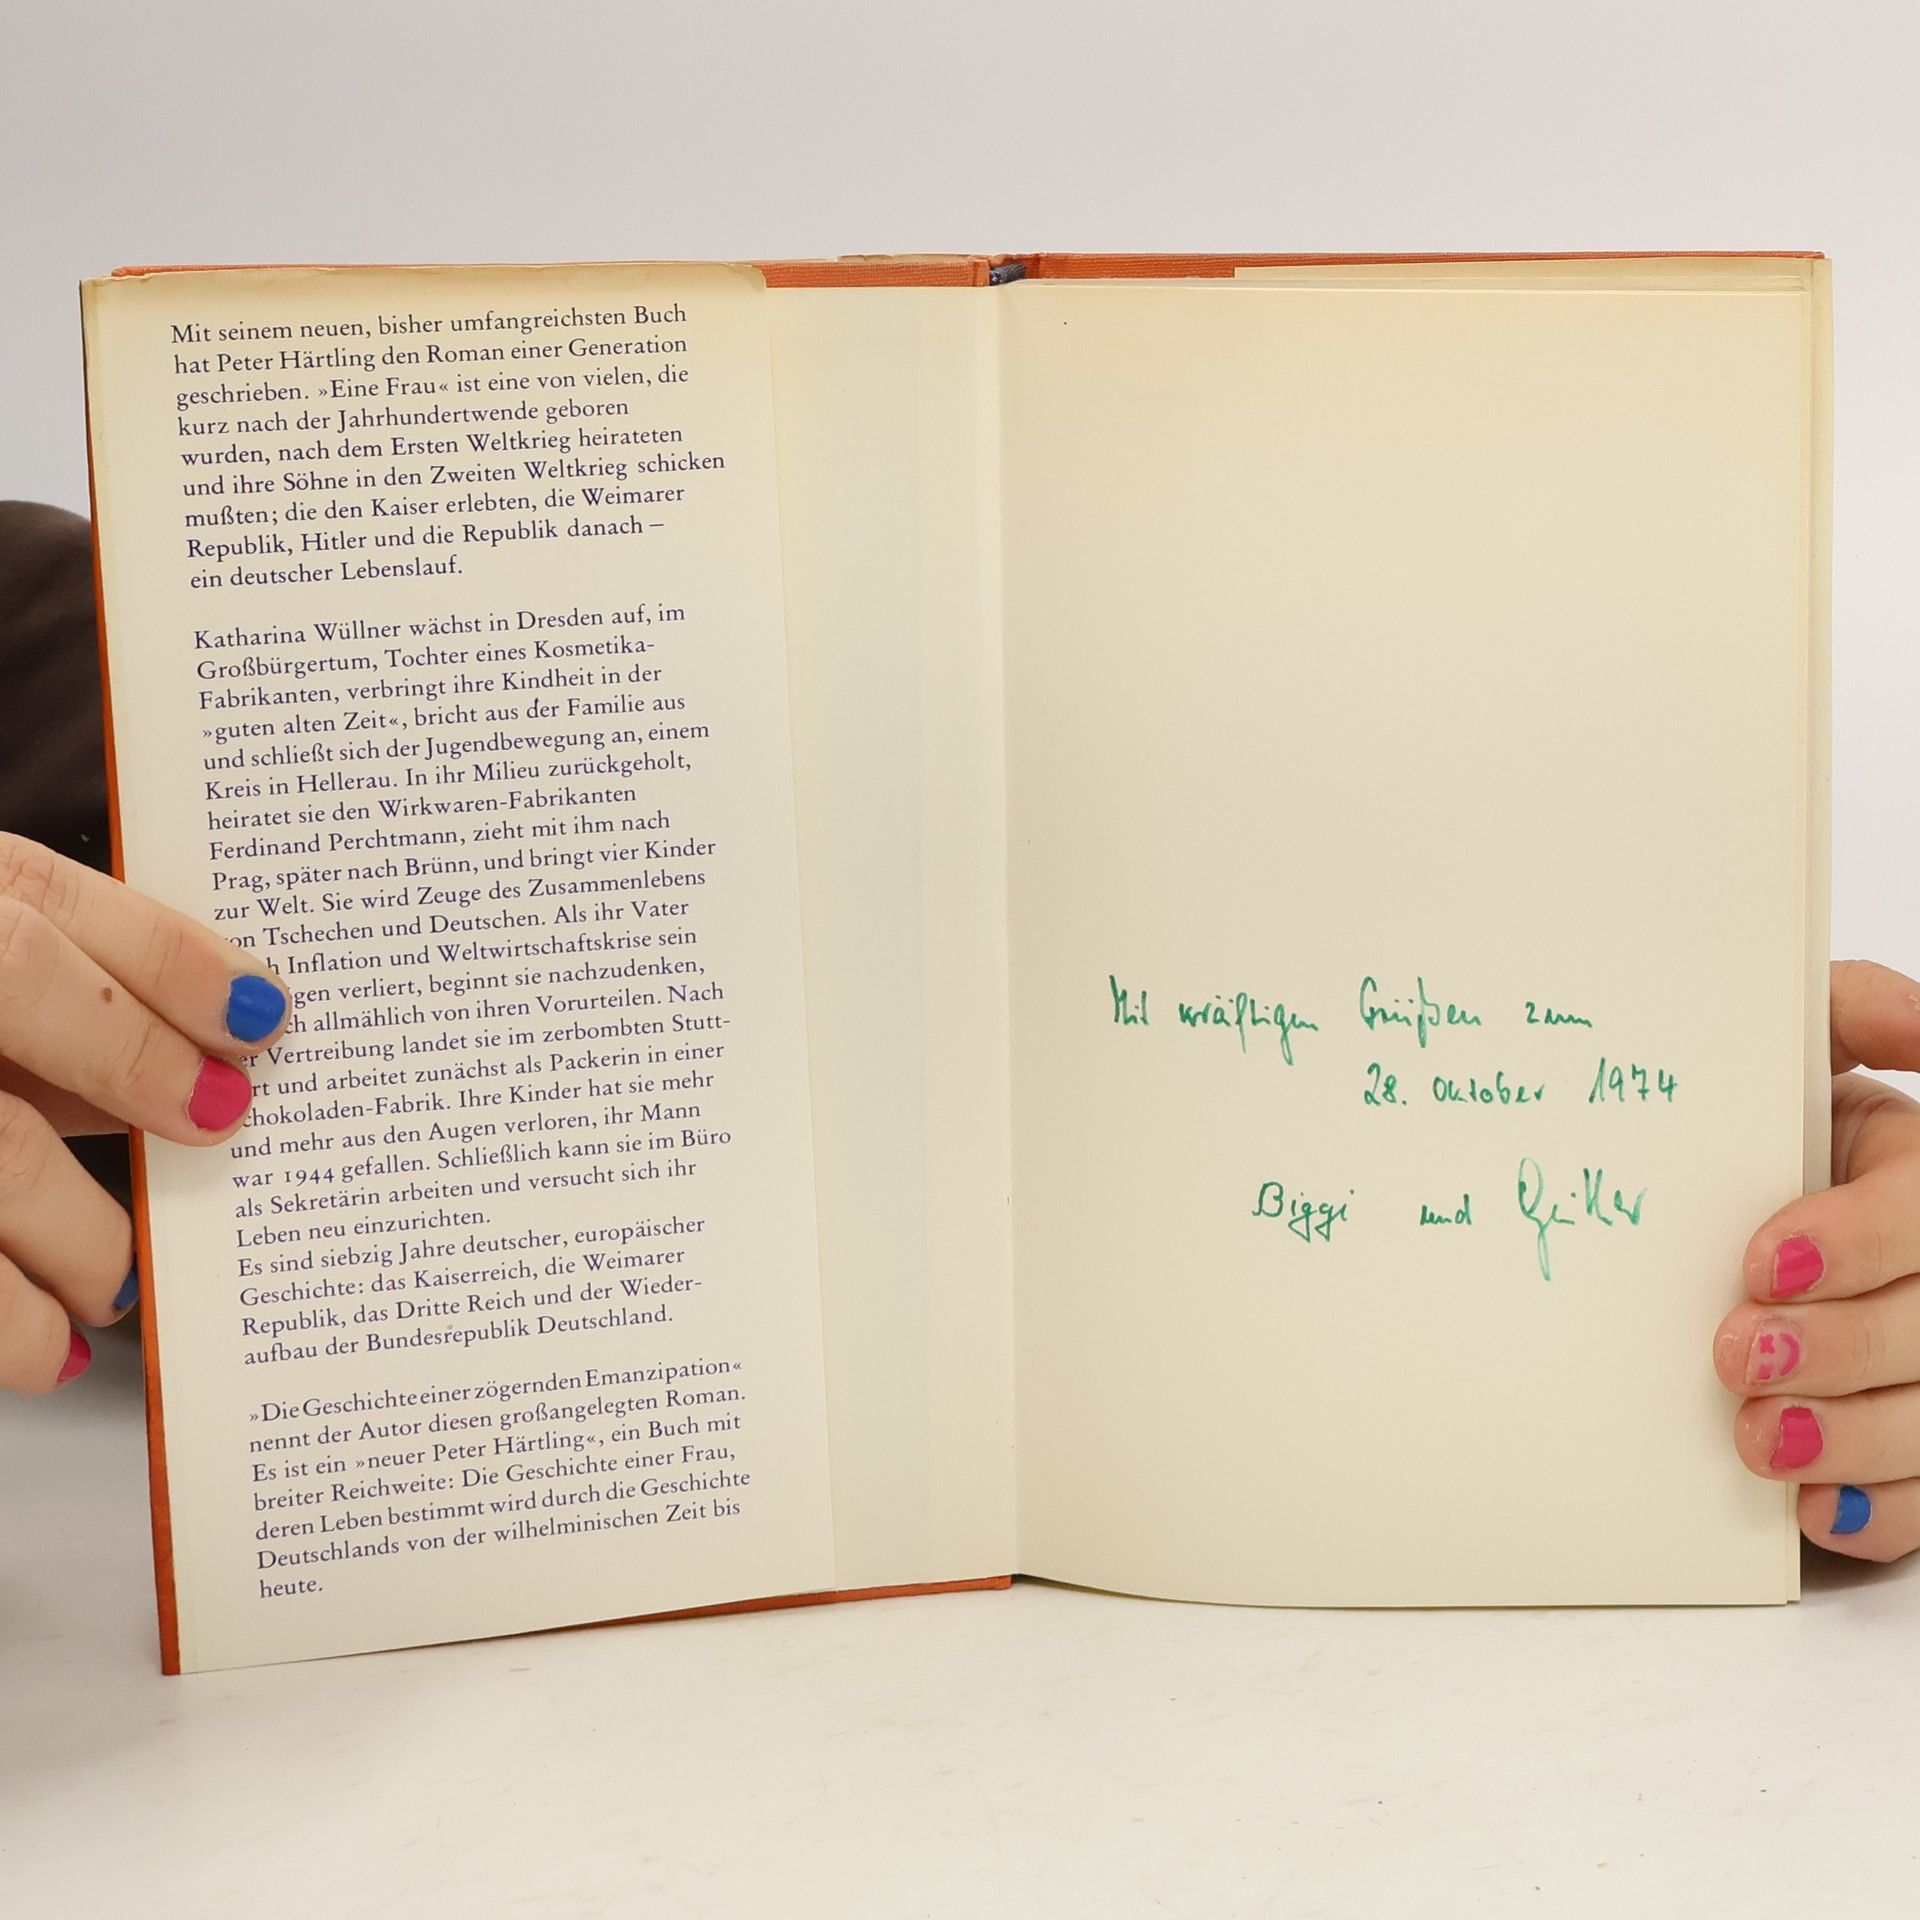 Mit seinem neuen, bisher umfangreichsten Buch
hat Peter Härtling den Roman einer Generation
geschrieben. »Eine Frau« ist eine von vielen, die
kurz nach der Jahrhundertwende geboren
wurden, nach dem Ersten Weltkrieg heirateten
und ihre Söhne in den Zweiten Weltkrieg schicken
mußten; die den Kaiser erlebten, die Weimarer
Republik, Hitler und die Republik danach –
ein deutscher Lebenslauf.
Katharina Wüllner wächst in Dresden auf, im
Großbürgertum, Tochter eines Kosmetika-
Fabrikanten, verbringt ihre Kindheit in der
»guten alten Zeit«, bricht aus der Familie aus
und schließt sich der Jugendbewegung an, einem
Kreis in Hellerau. In ihr Milieu zurückgeholt,
heiratet sie den Wirkwaren-Fabrikanten
Ferdinand Perchtmann, zieht mit ihm nach
Prag, später nach Brünn, und bringt vier Kinder
zur Welt. Sie wird Zeuge des Zusammenlebens
on Tschechen und Deutschen. Als ihr Vater
h Inflation und Weltwirtschaftskrise sein
gen verliert, beginnt sie nachzudenken,
ch allmählich von ihren Vorurteilen. Nach
er Vertreibung landet sie im zerbombten Stutt-
rt und arbeitet zunächst als Packerin in einer
chokoladen-Fabrik. Ihre Kinder hat sie mehr
und mehr aus den Augen verloren, ihr Mann
war 1944 gefallen. Schließlich kann sie im Büro
als Sekretärin arbeiten und versucht sich ihr
Leben neu einzurichten.
Es sind siebzig Jahre deutscher, europäischer
Geschichte: das Kaiserreich, die Weimarer
Republik, das Dritte Reich und der Wieder-
aufbau der Bundesrepublik Deutschland.
»Die Geschichte einer zögernden Emanzipation«
nennt der Autor diesen großangelegten Roman.
Es ist ein »neuer Peter Härtling«, ein Buch mit
breiter Reichweite: Die Geschichte einer Frau,
deren Leben bestimmt wird durch die Geschichte
Deutschlands von der wilhelminischen Zeit bis
heute.
Mit kräftigen Grüßen zum
28. Oktober 1974
Biggi und